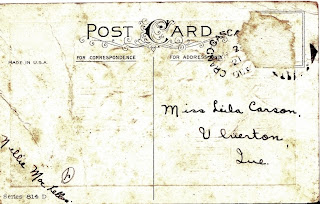 POST CARD
MADE IN U.S.A.
FOR CORRESPONDENCE
FOR ADDRESS
Miss Leila Carson,
Ulverton,
Que.
Nellie
Series 614 D